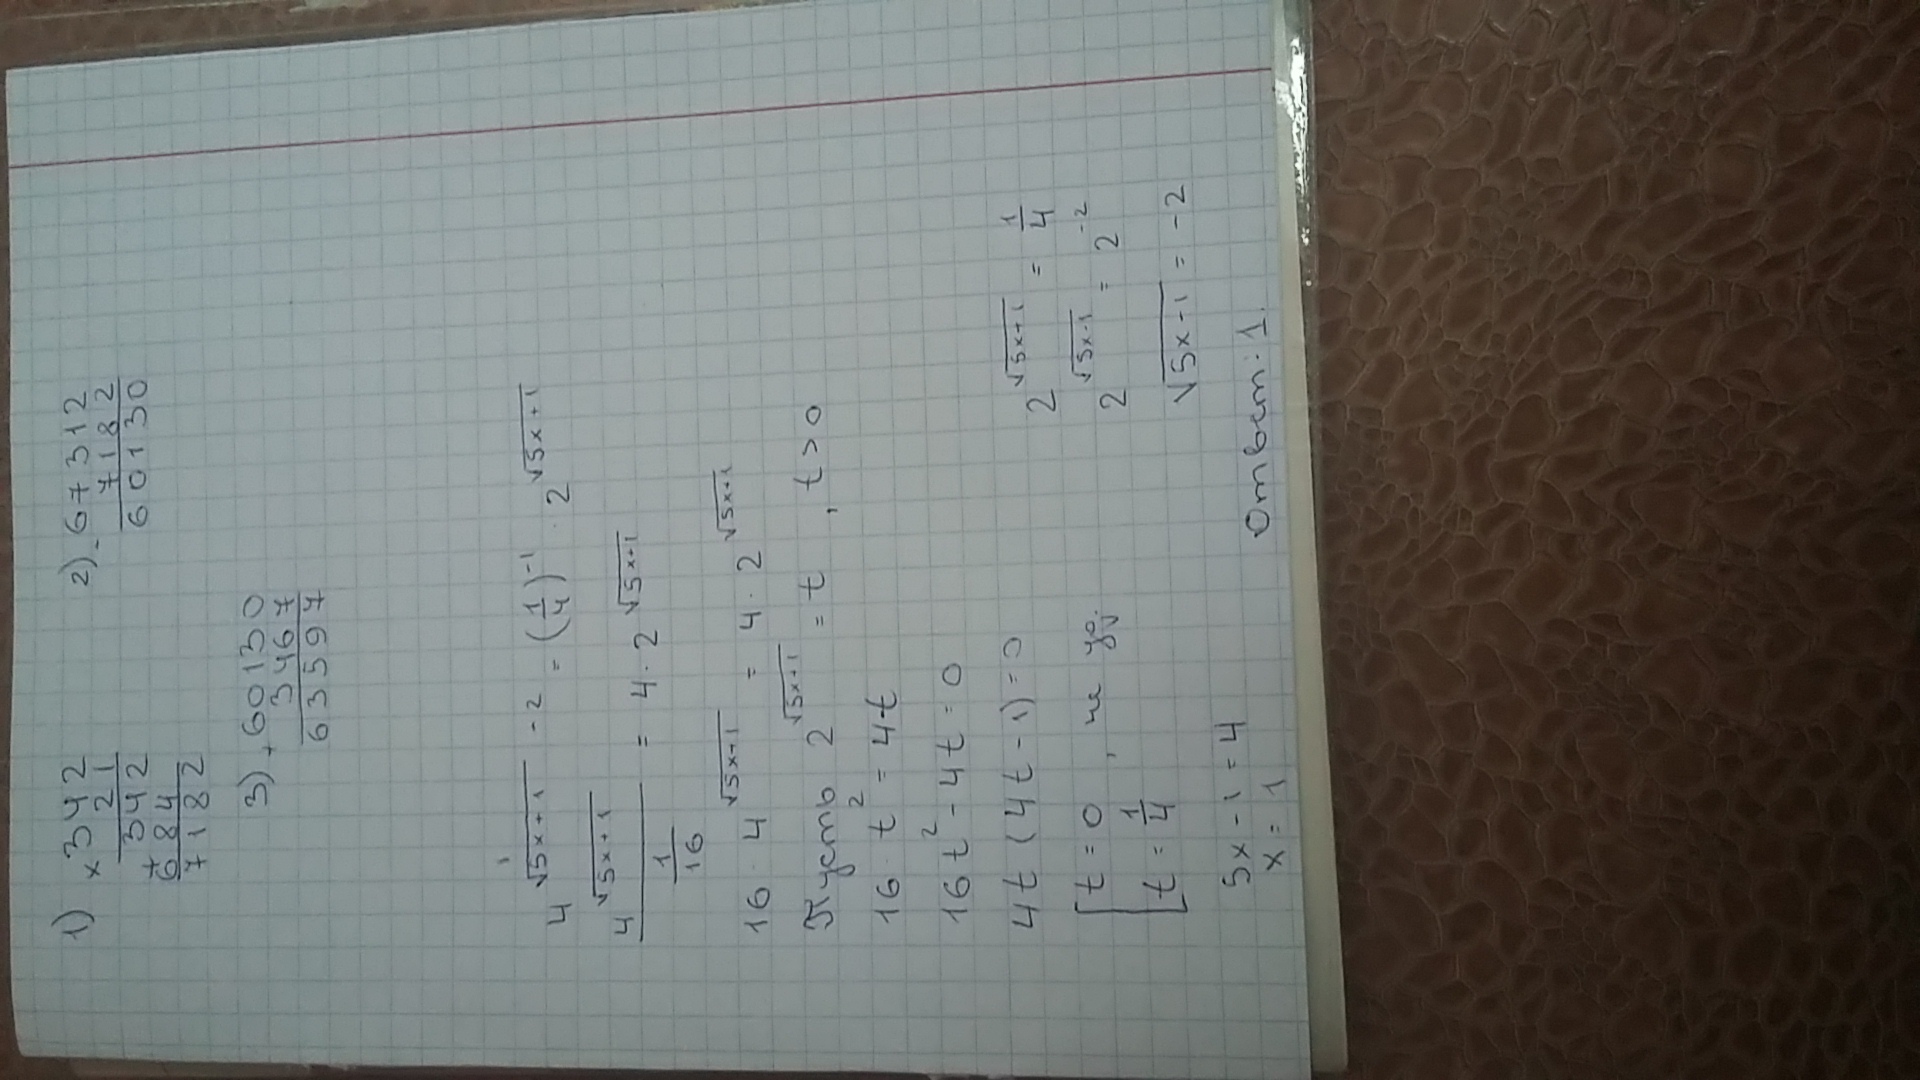 1) × 342
21
342
+ 684
7182
2) - 67312
7182
60130
3) + 60130
3467
63597
4^√(5x+1) - 2 = (1/4)^-1 · 2^√(5x+1)
4^√(5x+1) / (1/16) = 4 · 2^√(5x+1)
16 · 4^√(5x+1) = 4 · 2^√(5x+1)
Пусть 2^√(5x+1) = t , t > 0
16 · t² = 4t
16t² - 4t = 0
4t (4t - 1) = 0
[ t = 0 , не уд.
[ t = 1/4
2^√(5x+1) = 1/4
2^√(5x-1) = 2^-2
√(5x-1) = -2
5x - 1 = 4
x = 1
Ответ: 1.